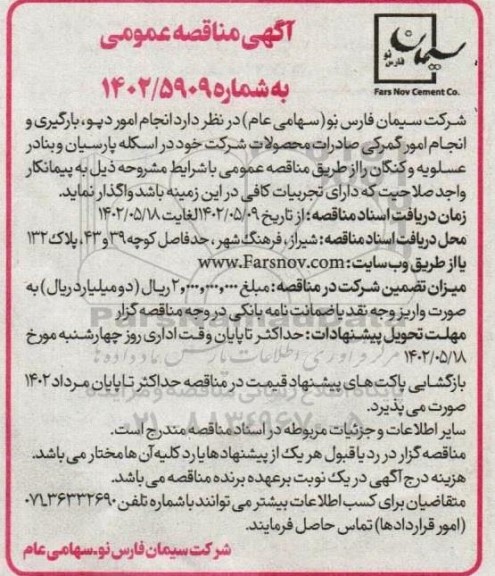 سیمان
فارس نو
Fars Nov Cement Co.
آگهی مناقصه عمومی
به شماره ۱۴۰۲/۵۹۰۹
شرکت سیمان فارس نو (سهامی عام) در نظر دارد انجام امور دپو، بارگیری و
انجام امور گمرکی صادرات محصولات شرکت خود در اسکله پارسیان و بنادر
عسلویه و کنگان را از طریق مناقصه عمومی با شرایط مشروحه ذیل به پیمانکار
واجد صلاحیت که دارای تجربیات کافی در این زمینه باشد واگذار نماید.
زمان دریافت اسناد مناقصه: از تاریخ ۱۴۰۲/۰۵/۰۹ لغایت ۱۴۰۲/۰۵/۱۸
محل دریافت اسناد مناقصه: شیراز، فرهنگ شهر، حدفاصل کوچه ۳۹ و ۴۳، پلاک ۱۳۲
یا از طریق وب سایت: www.Farsnov.com
میزان تضمین شرکت در مناقصه: مبلغ ۲,۰۰۰,۰۰۰,۰۰۰ ریال (دو میلیارد ریال) به
صورت واریز وجه نقد یا ضمانت نامه بانکی در وجه مناقصه گزار
مهلت تحویل پیشنهادات: حداکثر تا پایان وقت اداری روز چهارشنبه مورخ
۱۴۰۲/۰۵/۱۸
بازگشایی پاکت های پیشنهاد قیمت در مناقصه حداکثر تا پایان مرداد ۱۴۰۲
صورت می پذیرد.
سایر اطلاعات و جزئیات مربوطه در اسناد مناقصه مندرج است.
مناقصه گزار در رد یا قبول هر یک از پیشنهادها یا رد کلیه آن ها مختار می باشد.
هزینه درج آگهی در یک نوبت بر عهده برنده مناقصه می باشد.
متقاضیان برای کسب اطلاعات بیشتر می توانند با شماره تلفن ۳۶۳۳۲۶۹۰-۰۷۱
(امور قراردادها) تماس حاصل فرمایند.
شرکت سیمان فارس نو-سهامی عام